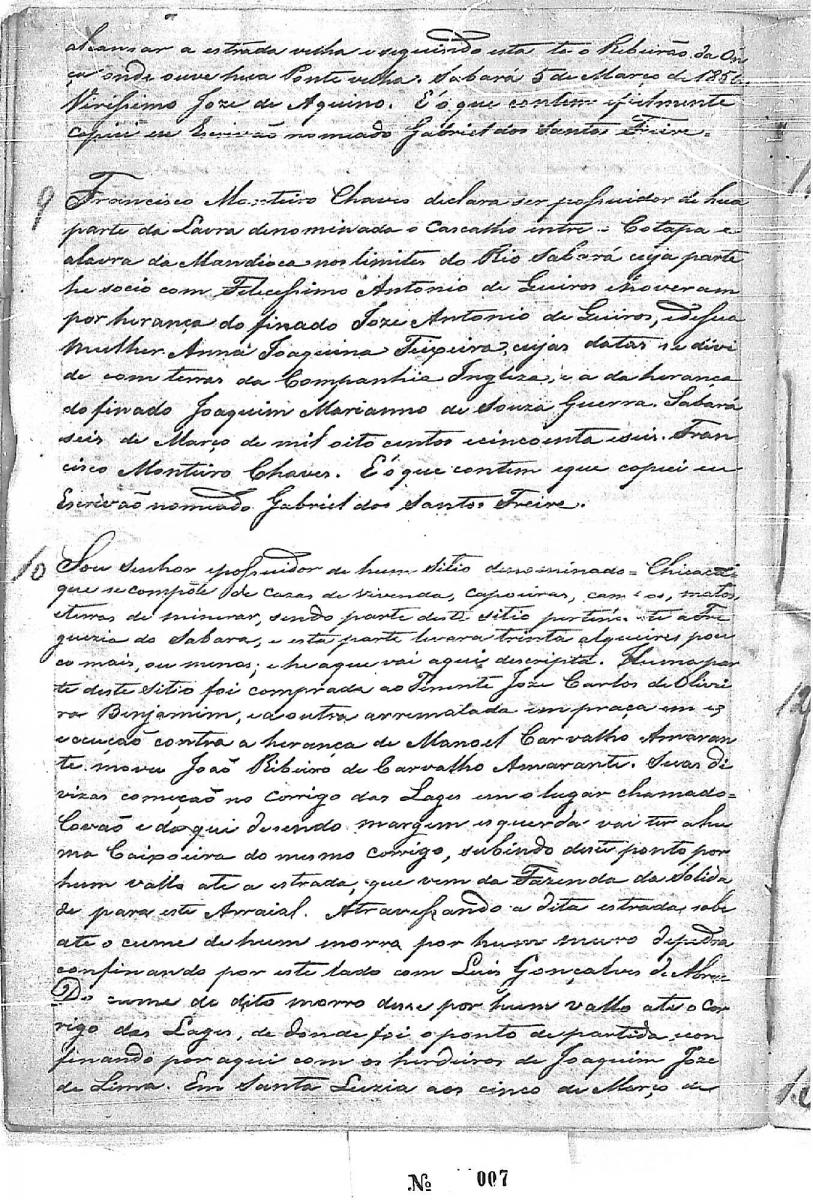 alcansar a estrada velha e seguindo esta te o Ribeirão da On
ça onde ouve huã Ponte velha. Sabará 5 de Março de 1856.
Viríssimo Joze de Aquino. É o que contem e fielmente
copiei eu Escrivão nomeado Gabriel dos Santos Freire.
9 Francisco Monteiro Chaves declara ser possuidor de huã
parte da Lavra denominada o Cascalho entre = Cotapa e
a lavra da Mandioca nos limites do Rio Sabará cuja parte
he socio com Felicissimo Antonio de Queiros e houveram
por herança do finado Joze Antonio de Queiros, e de sua
mulher Anna Joaquina Teixeira, cujas datas se divi
de com terras da Companhia Ingleza, e a da herança
do finado Joaquim Marianno de Souza Guerra. Sabará
seis de Março de mil oito centos e cincoenta e seis. Fran
cisco Monteiro Chaves. É o que contem e que copiei eu
Escrivão nomeado Gabriel dos Santos Freire.
10 Sou senhor e possuidor de hum sitio denominado =
que se compõe de cazas de vivenda, capoeiras, campos, matos,
e terras de minerar, sendo parte deste sitio pertencente a Fre
guezia do Sabara, e esta parte levara trinta alqueires pou
co mais, ou menos; e he a que vai aqui descripta. Huma par
te deste sitio foi comprada ao Tenente Joze Carlos de Olivei
ra Benjamim, e a outra arrematada em praça em ex
ecução contra a herança de Manoel Carvalho Amaran
te moveu João Ribeiro de Carvalho Amarante. Suas di
vizas começão no Corrigo das Lages em o lugar chamado =
Covão e daqui desendo margem esquerda vai ter a hu
ma Caixoeira do mesmo corrigo, subindo deste ponto por
hum vallo ate a estrada, que vem da Fazenda da Solida
de para este Arraial. Atravessando a dita estrada sobe
ate o cume de hum morro por hum muro de pedra
confinando por este lado com Luis Gonçalves de Abre
Do cume do dito morro desse por hum vallo ate o Cor
rigo das Lages, de donde foi o ponto de partida, con
finando por aqui com os herdeiros de Joaquim Joze
de Lima. Em Santa Luzia aos cinco de Março de
12
Nº 007